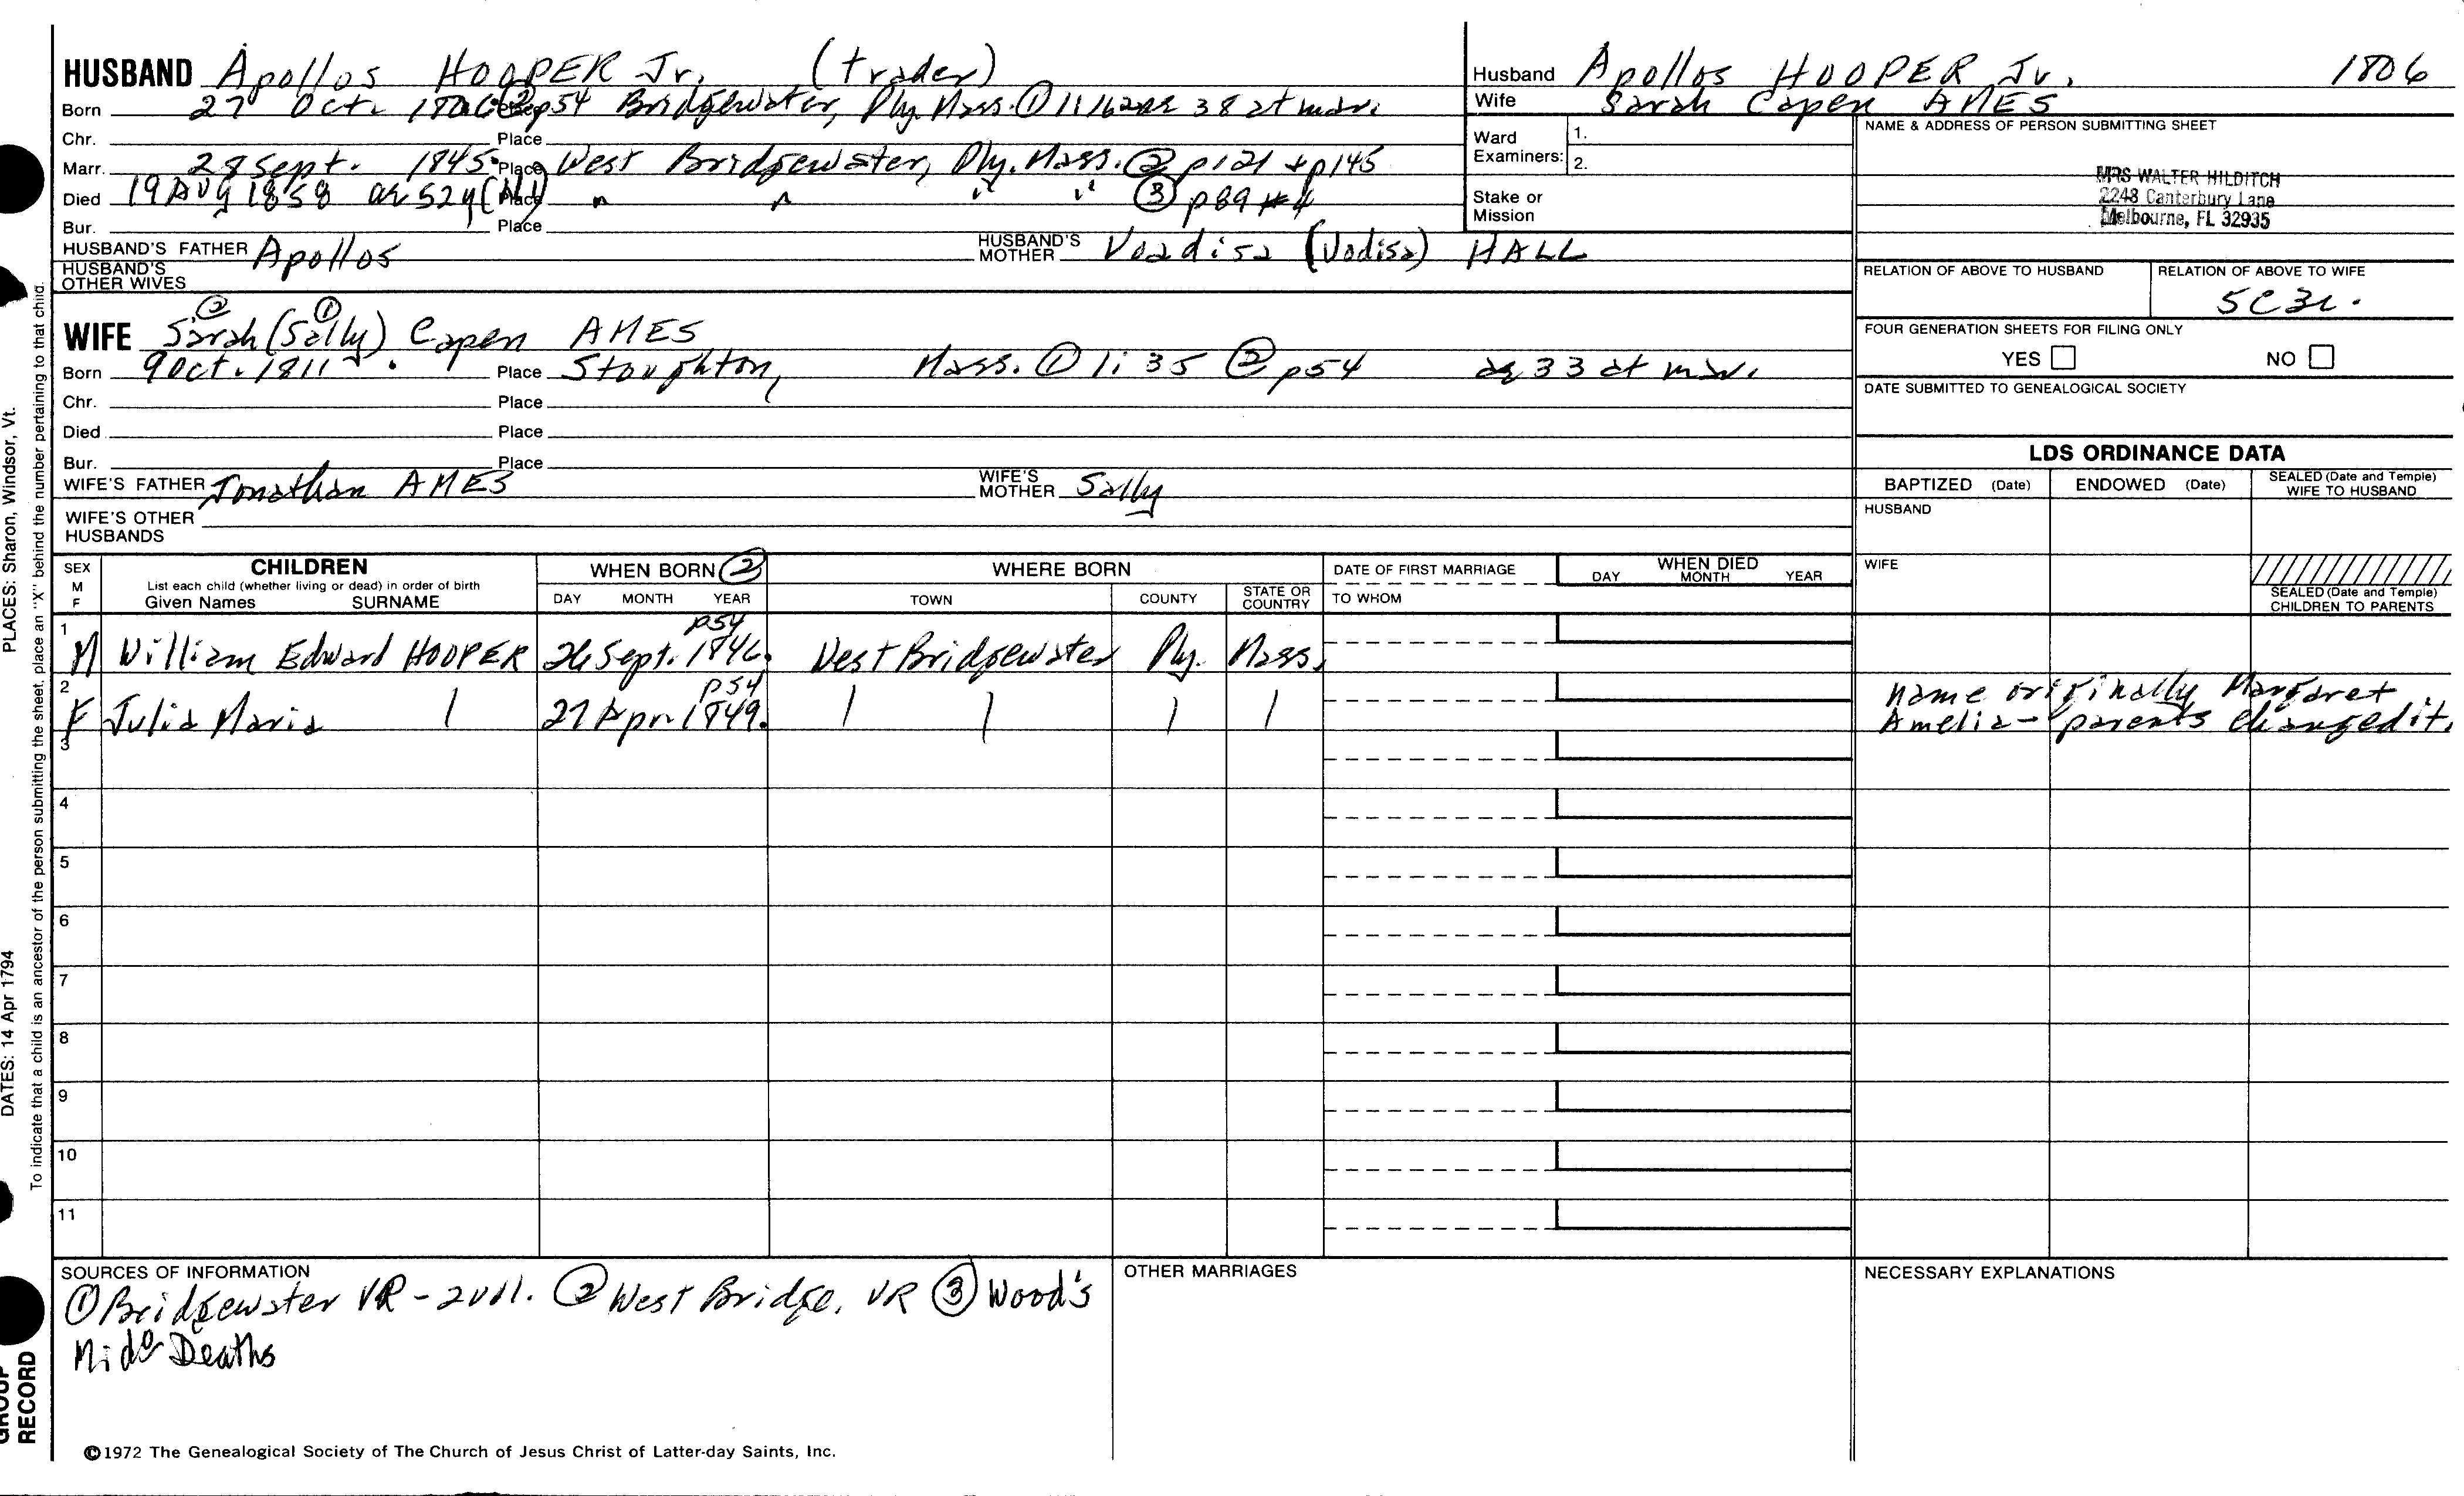 HUSBAND Apollos HOOPER Jr. (trader)
Born 27 Oct. 1806 ② p54 Bridgewater, Ply. Mass. ① 38 at mar.
Chr. Place
Marr. 28 Sept. 1845 Place West Bridgewater, Ply. Mass. ② p121 + p145
Died 19 AUG 1858 ae 52y Place " " " " ③ p89 #4
Bur. Place
HUSBAND'S FATHER Apollos HUSBAND'S MOTHER Voadisa (Vodisa) HALL
HUSBAND'S OTHER WIVES
② ①
WIFE Sarah (Sally) Capen AMES
Born 9 Oct. 1811 Place Stoughton, Mass. ① 1:35 ② p54 ae 33 at mar.
Chr. Place
Died Place
Bur. Place
WIFE'S FATHER Jonathan AMES WIFE'S MOTHER Sally
WIFE'S OTHER HUSBANDS
Husband Apollos HOOPER Jr. 1806
Wife Sarah Capen AMES
Ward Examiners: 1.
2.
Stake or Mission
NAME & ADDRESS OF PERSON SUBMITTING SHEET
MRS WALTER HILDITCH
2248 Canterbury Lane
Melbourne, FL 32935
RELATION OF ABOVE TO HUSBAND RELATION OF ABOVE TO WIFE
5C3r.
FOUR GENERATION SHEETS FOR FILING ONLY
YES NO
DATE SUBMITTED TO GENEALOGICAL SOCIETY
LDS ORDINANCE DATA
BAPTIZED (Date) ENDOWED (Date) SEALED (Date and Temple) WIFE TO HUSBAND
HUSBAND
WIFE
SEALED (Date and Temple) CHILDREN TO PARENTS
SEX M F CHILDREN WHEN BORN ② WHERE BORN DATE OF FIRST MARRIAGE WHEN DIED
List each child (whether living or dead) in order of birth
Given Names SURNAME DAY MONTH YEAR TOWN COUNTY STATE OR COUNTRY TO WHOM DAY MONTH YEAR
1 p54
M William Edward HOOPER 26 Sept. 1846. West Bridgewater Ply. Mass.
2 p54
F Julia Maria 27 Apr. 1849. Name originally Margaret
Amelia - parents changed it.
3
4
5
6
7
8
9
10
11
SOURCES OF INFORMATION
① Bridgewater VR - 2 vol. ② West Bridge. VR ③ Wood's
Deaths
OTHER MARRIAGES
NECESSARY EXPLANATIONS
©1972 The Genealogical Society of The Church of Jesus Christ of Latter-day Saints, Inc.
PLACES: Sharon, Windsor, Vt.
DATES: 14 Apr 1794
To indicate that a child is an ancestor of the person submitting the sheet, place an "X" behind the number pertaining to that child.
GROUP
RECORD